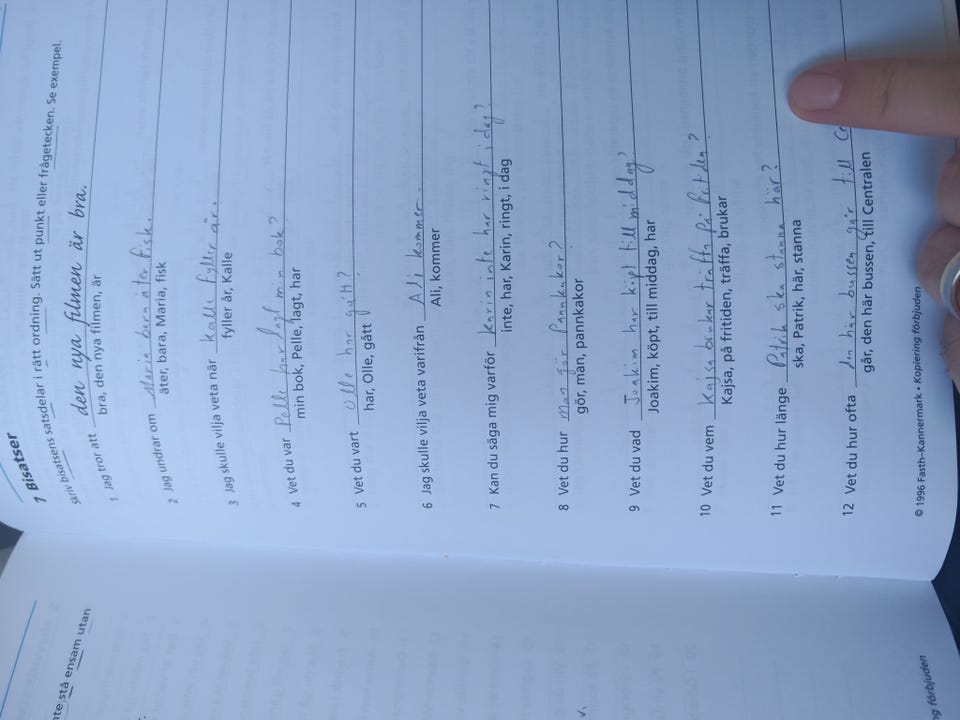 7 Bisatser
Skriv bisatsens satsdelar i rätt ordning. Sätt ut punkt eller frågetecken. Se exempel.
1 Jag tror att den nya filmen är bra.
bra, den nya filmen, är
2 Jag undrar om Maria bara äter fisk.
äter, bara, Maria, fisk
3 Jag skulle vilja veta när kalle fyller år.
fyller år, Kalle
4 Vet du var Pelle har lagt min bok?
min bok, Pelle, lagt, har
5 Vet du vart Olle har gått?
har, Olle, gått
6 Jag skulle vilja veta varifrån Ali kommer.
Ali, kommer
7 Kan du säga mig varför karin inte har ringt i dag?
inte, har, Karin, ringt, i dag
8 Vet du hur man gör Pannkakor?
gör, man, pannkakor
9 Vet du vad Joakim har köpt till middag?
Joakim, köpt, till middag, har
10 Vet du vem kajsa brukar träffa på fritiden?
Kajsa, på fritiden, träffa, brukar
11 Vet du hur länge Patrik ska stanna här?
ska, Patrik, här, stanna
12 Vet du hur ofta den här bussen går till
går, den här bussen, till Centralen
© 1996 Fasth–Kannermark • Kopiering förbjuden
stå ensam utan
förbjuden